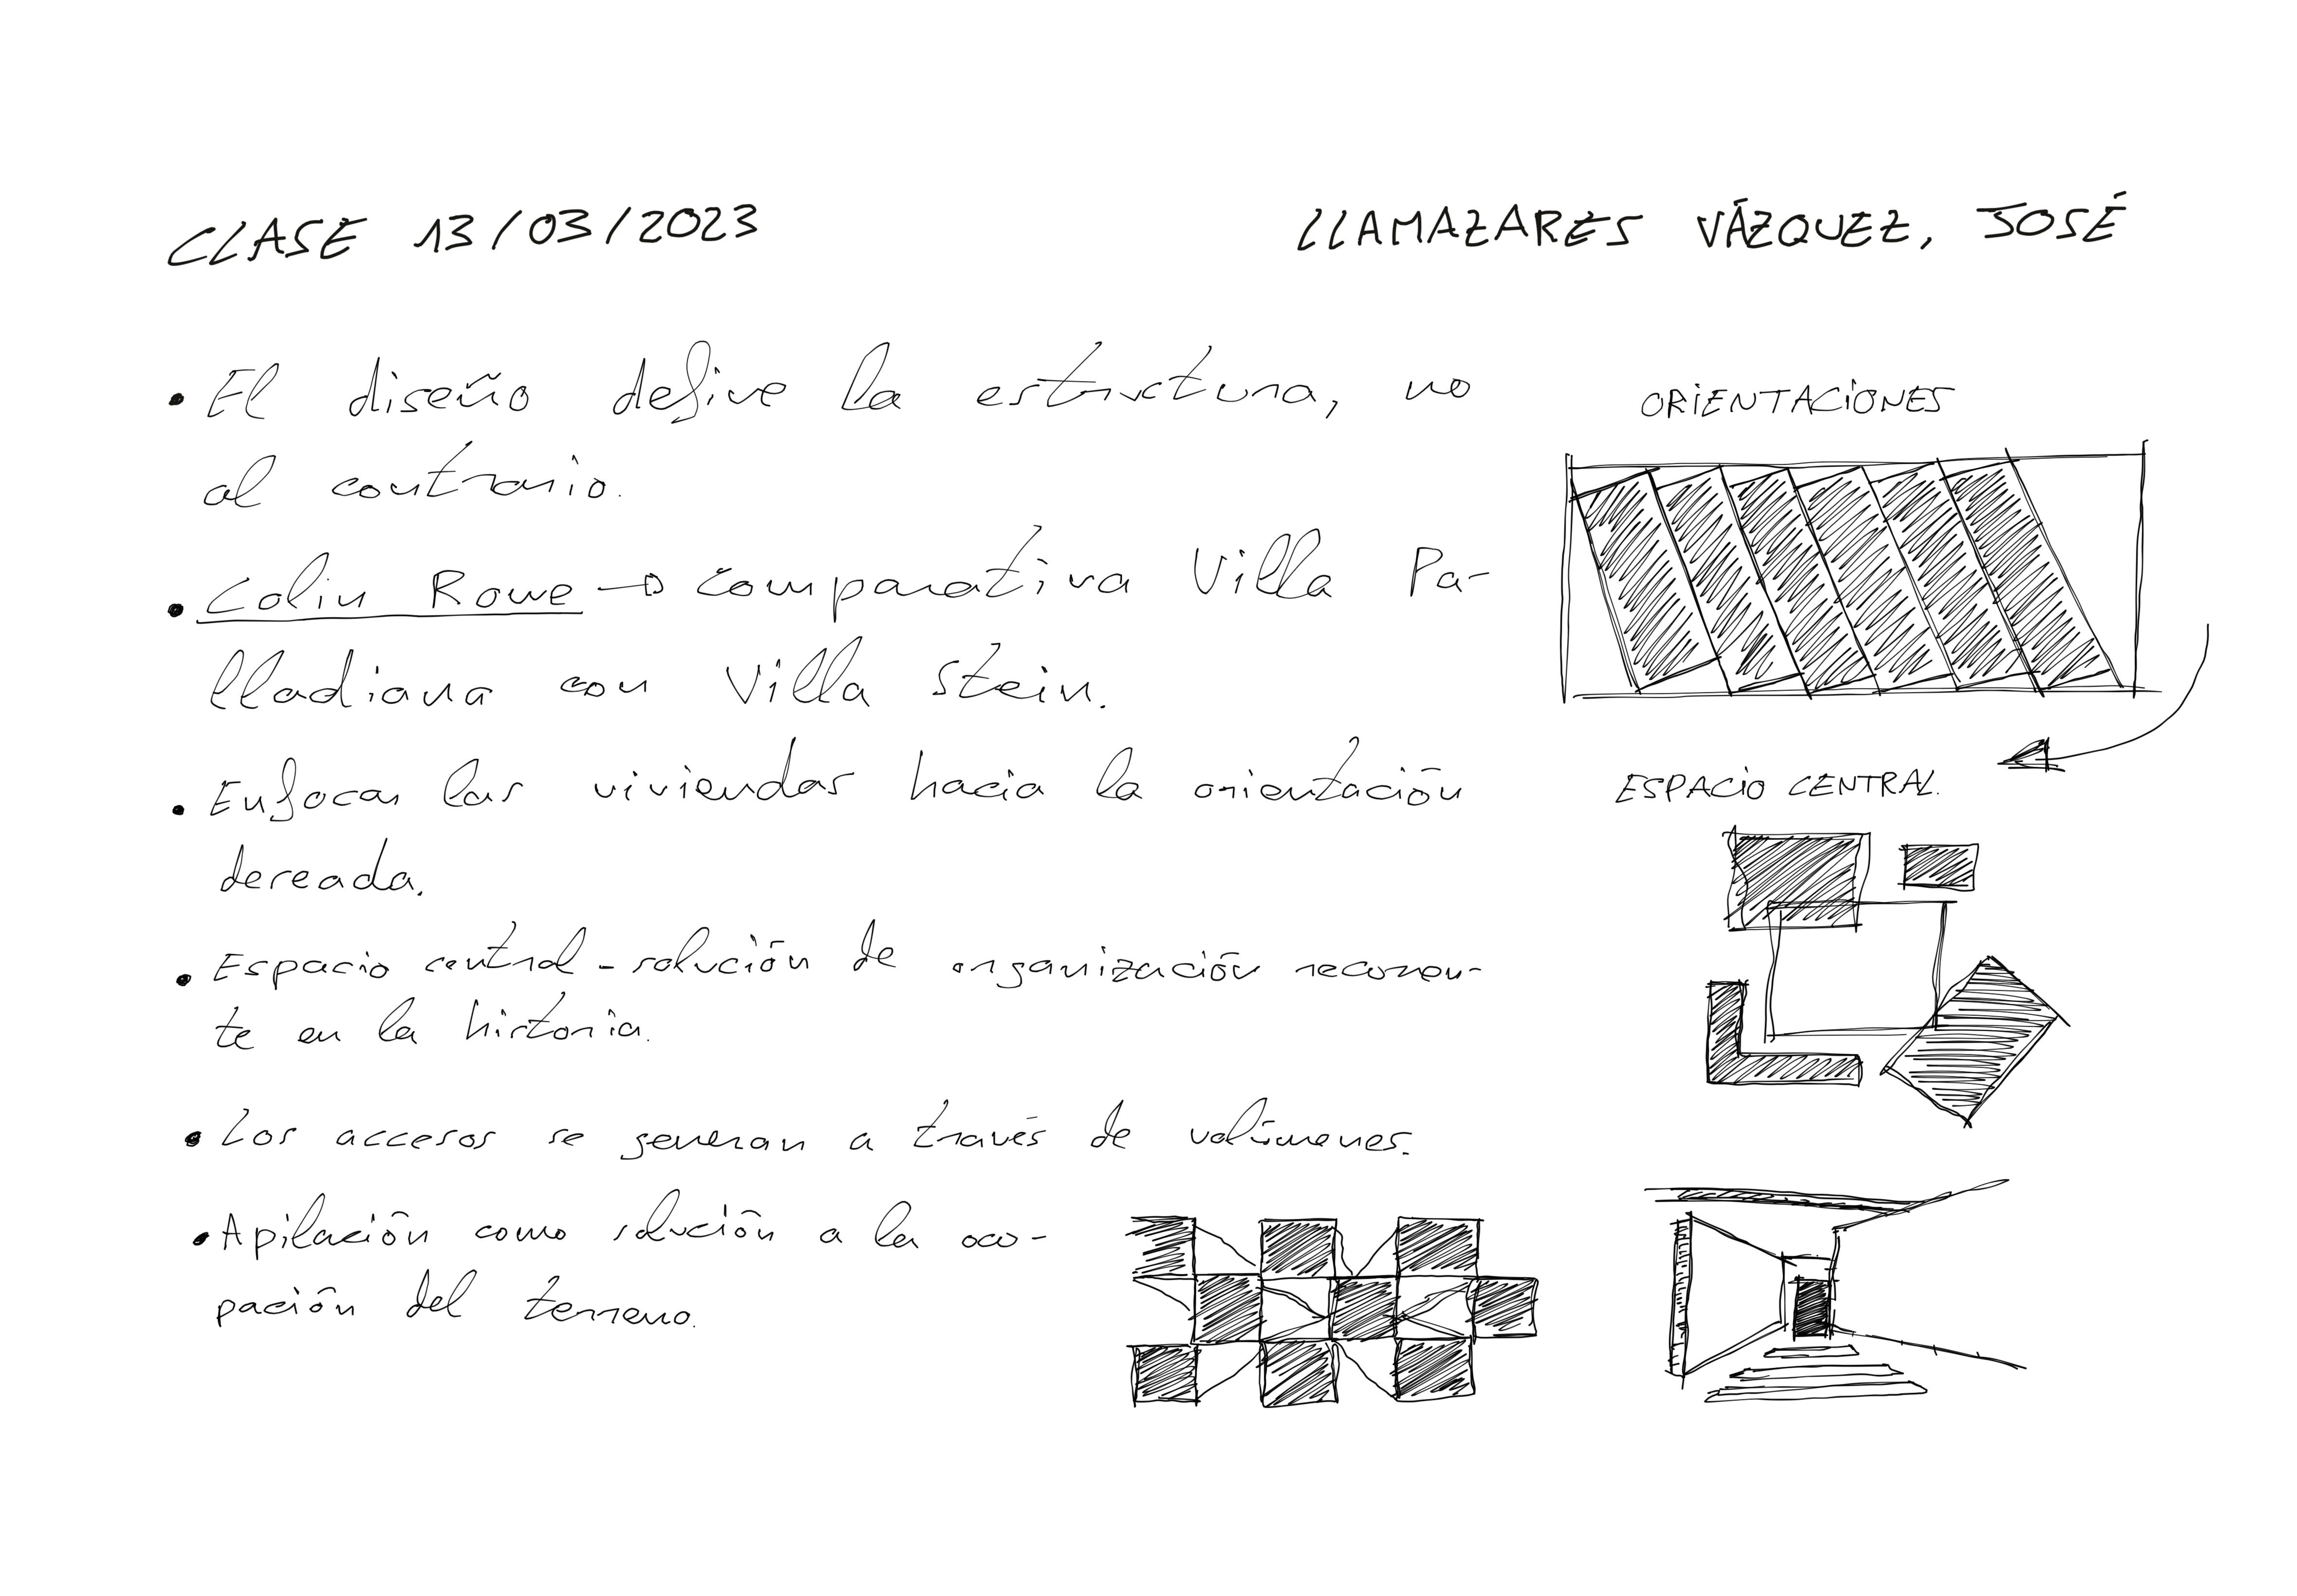 CLASE 13/03/2023
LLAMAZARES VÁZQUEZ, JOSÉ
• El diseño define la estructura, no
al contrario.
• Colin Rowe → comparativa Villa Pa-
lladiana con Villa Stein.
• Enfocar las viviendas hacia la orientación
deseada.
• Espacio central - solución de organización recurren-
te en la historia.
• Los accesos se generan a través de volúmenes.
• Apilación como solución a la ocu-
pación del terreno.
ORIENTACIONES
ESPACIO CENTRAL.